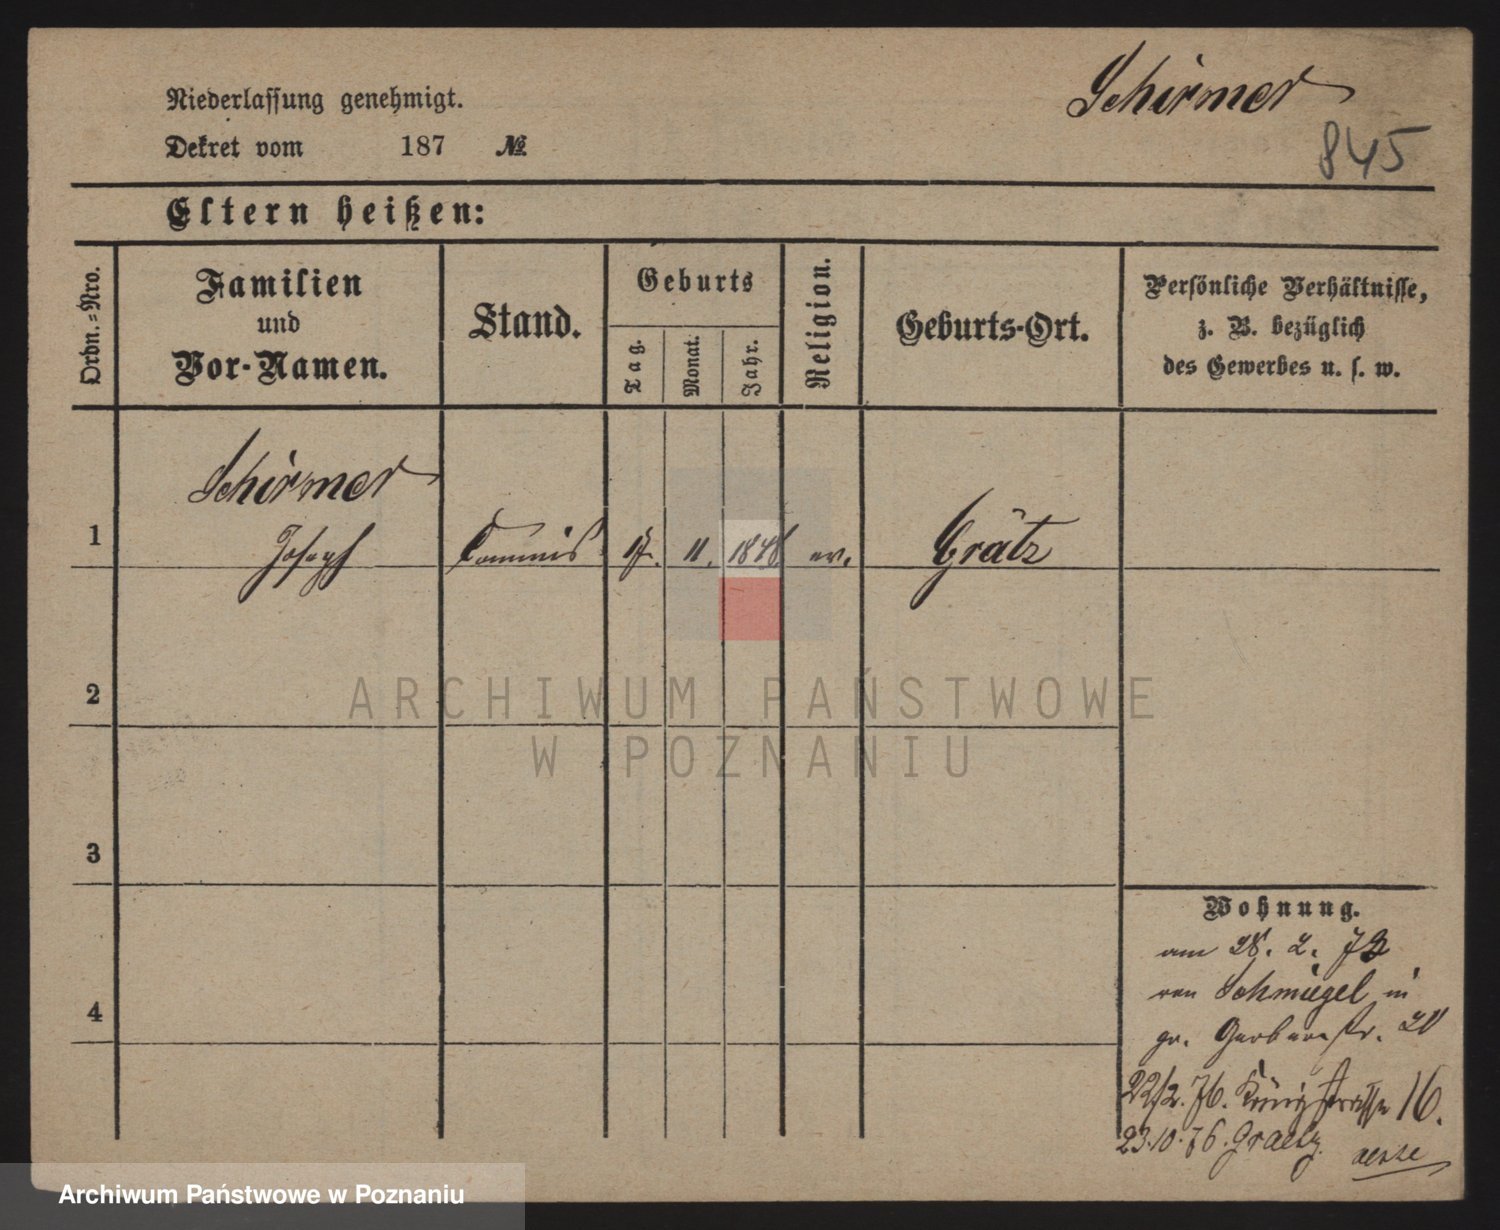 Schirmer
845
Niederlassung genehmigt.
Dekret vom 187 №
Eltern heißen:
Ordn.-Nro.
Familien
und
Vor-Namen.
Stand.
Geburts
Tag.
Monat.
Jahr.
Religion.
Geburts-Ort.
Persönliche Verhältnisse,
z. B. bezüglich
des Gewerbes u. s. w.
1
Schirmer
Joseph Commis 17. 11. 1848 ev. Grätz
2
3
4
Wohnung.
am 28. 2. 73
von Schmiegel in
gr. Gerberstr.
22/2. 76. Königstrasse 16.
23.10.76. Graetz
ARCHIWUM PAŃSTWOWE
W POZNANIU
Archiwum Państwowe w Poznaniu